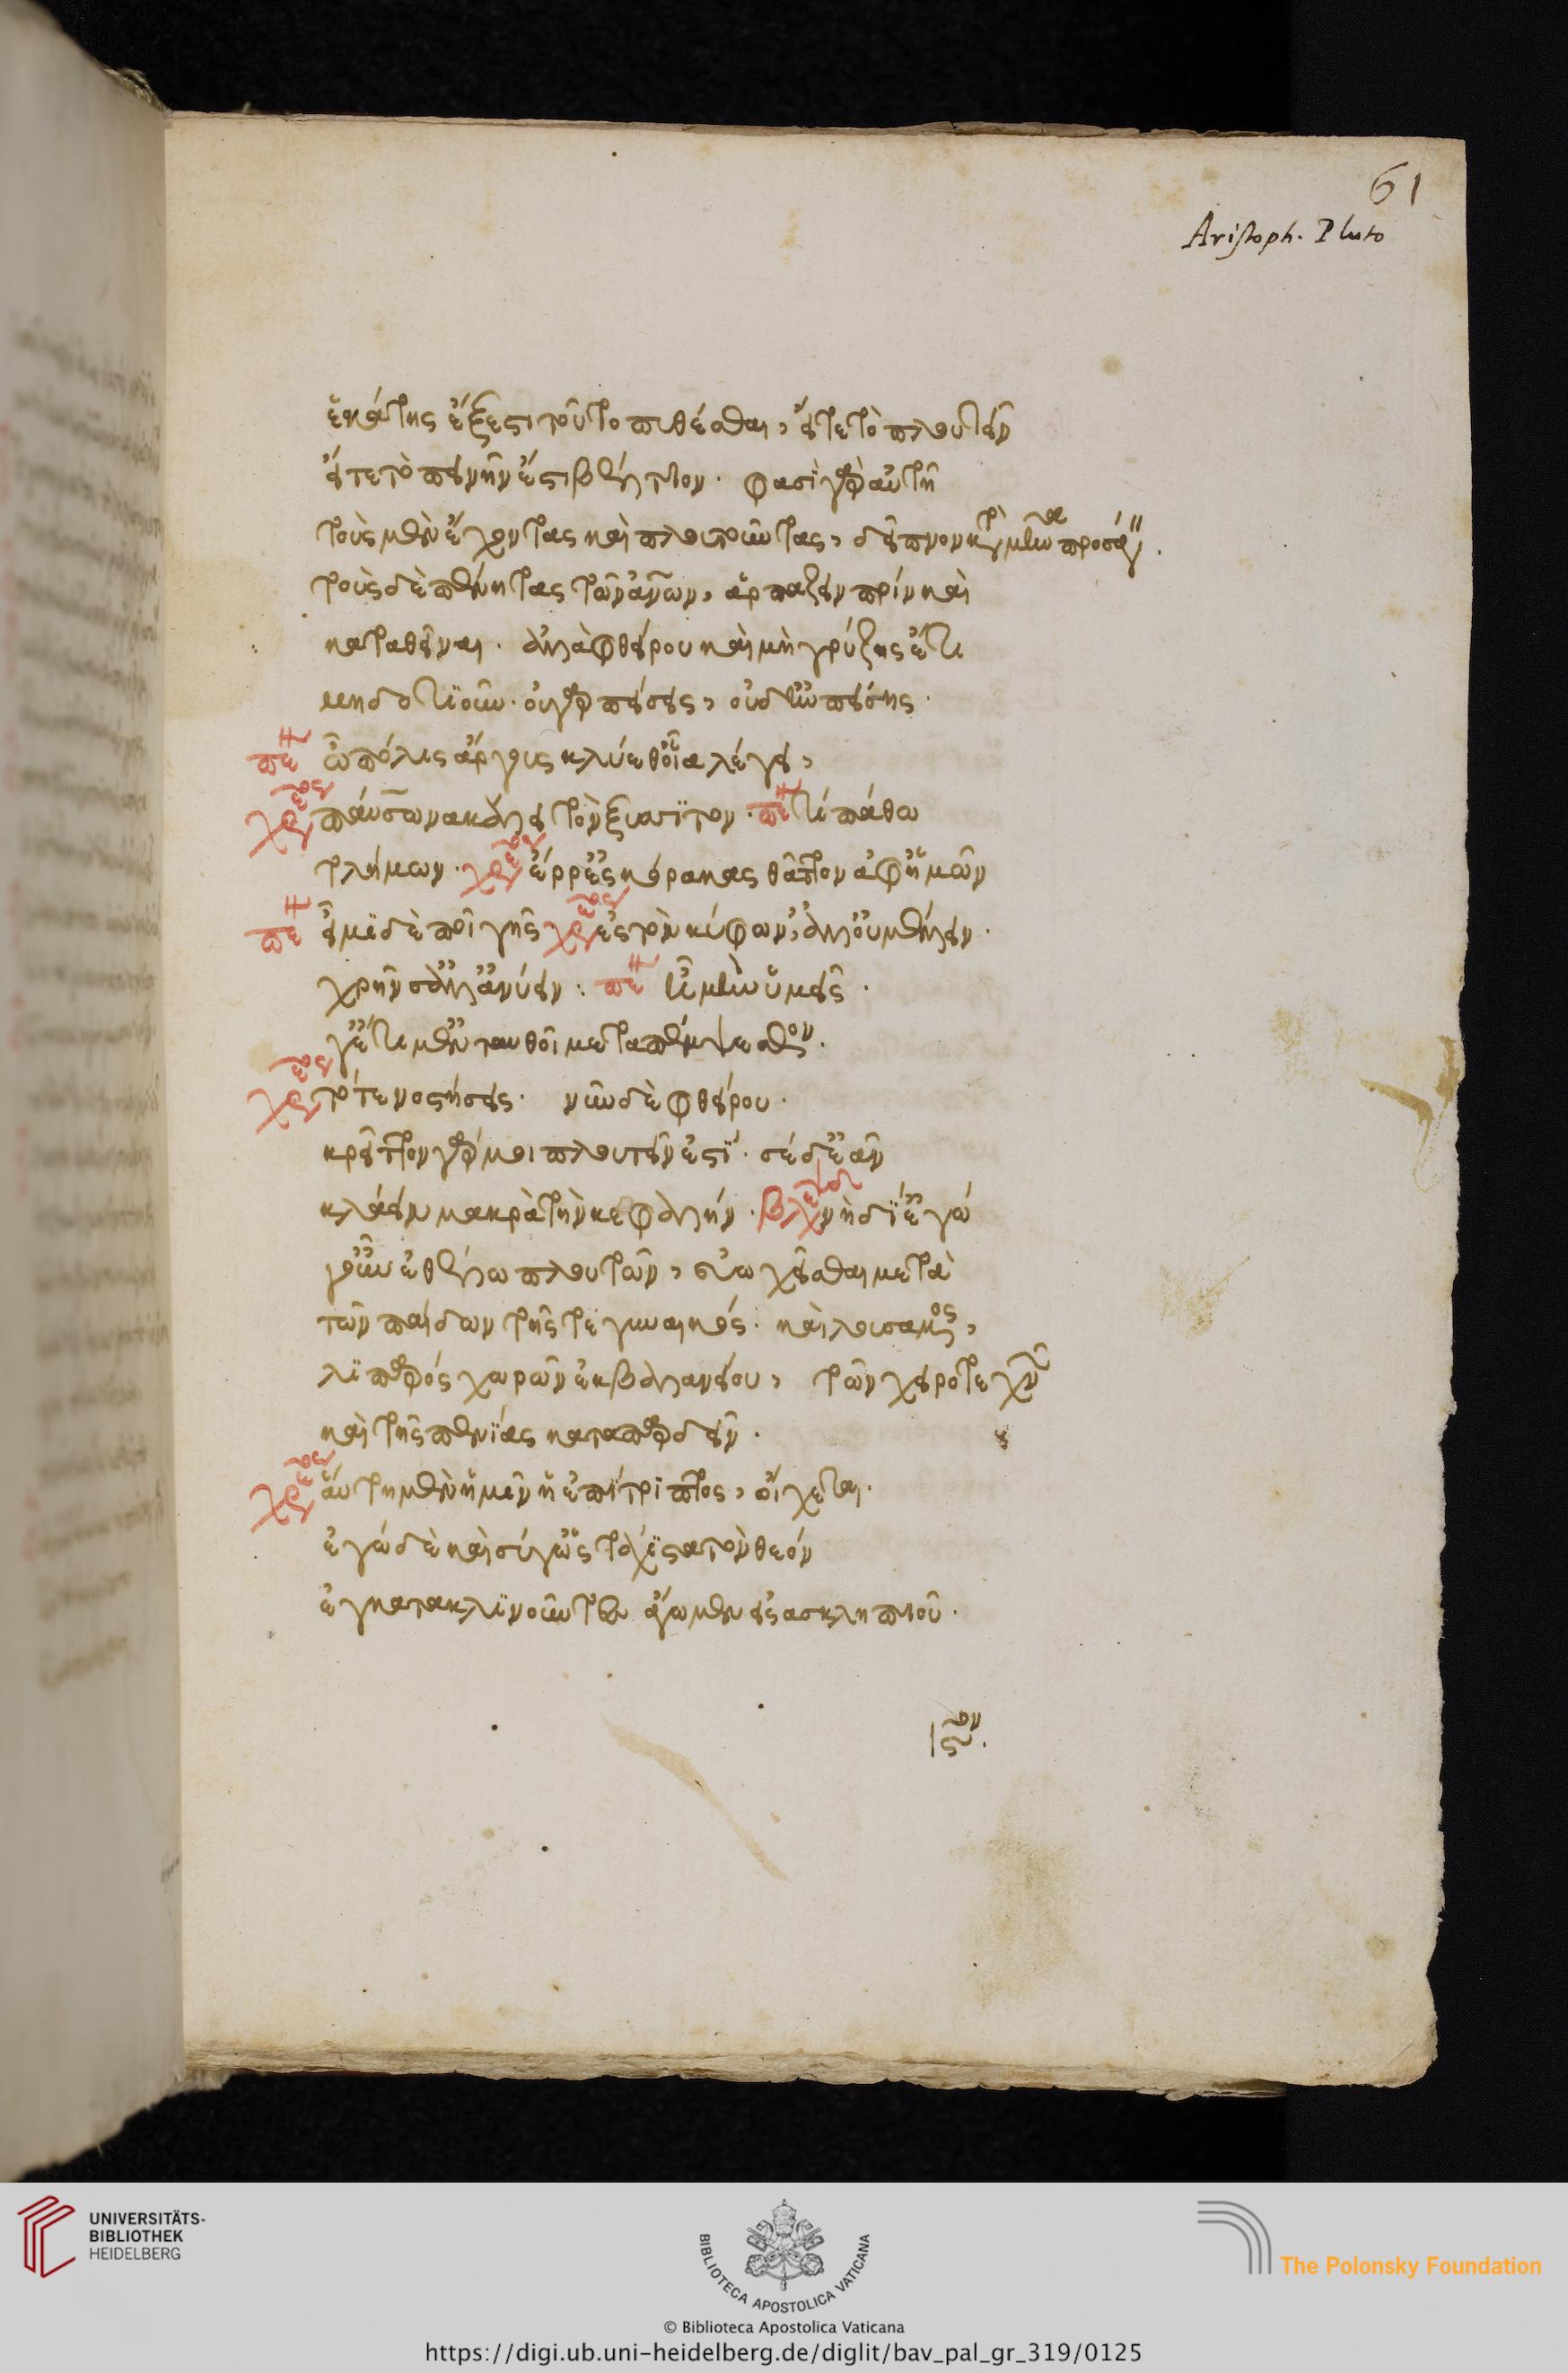 61
Aristoph. Pluto
ἑκάτης ἔξεστι τοῦτο πιθέσθαι, εἴτε τὸ πλουτεῖν
εἴτε τὸ πεινῆν ἔστι βέλτιον. φασὶ γὰρ αὐτὴ
τοὺς μὲν ἔχοντας καὶ πλουτοῦντας, δεῖπνον κατὰ μῆνα προσάγειν.
τοὺς δὲ πένητας τῶν ἀνῶν, ἁρπάζειν πρίν καὶ
καταθεῖναι. ἀλλὰ φθείρου καὶ μὴ γρύζης ἔτι
μηδοτιοῦν. οὐ γὰρ πείσεις, οὐδ' ἢν πείσης.
πεν ὦ πόλις ἄργους κλύεθ' οἷα λέγει,
χρε παύσωνα κάλει τὸν ξυσσιτον. πεν τί πάθω
τλήμων. χρε ἔρρ' ἐς κόρακας θᾶττον ἀφ' ἡμῶν
πεν εἶμι δὲ ποῖ γῆς χρε ἐς τὸν κύφων', ἀλλ' οὐ μέλλειν.
χρῆν σ' ἀλλ' ἀνύειν: πεν ἦ μὴν ὑμεῖς
γ' ἔτι μ' ἐνταυθοῖ μεταπέμψεσθον.
χρε τότε νοστήσεις. νῦν δὲ φθείρου.
κρεῖττον γάρ μοι πλουτεῖν ἐστί. σὲ δ' ἐᾶν
κλάειν μακρὰ τὴν κεφαλήν. βλεψ νὴ δί' ἐγώ
γοῦν ἐθέλω πλουτῶν, εὐωχεῖσθαι μετὰ
τῶν παίδων τῆς τε γυναικός. καὶ λουσάμενος,
λιπαρός χωρῶν ἐκ βαλανείου, τῶν χειροτεχνῶν
καὶ τῆς πενίας καταπαρδεῖν.
χρε αὕτη μὲν ἡμῖν ἡ ἐπίτριπτος, οἴχεται.
ἐγὼ δὲ καὶ σύ γ' ὡς τάχιστα τὸν θεόν
ἐγκατακλινοῦντ' ἄγωμεν εἰς ἀσκληπιοῦ.
UNIVERSITÄTS-
BIBLIOTHEK
HEIDELBERG
BIBLIOTECA APOSTOLICA VATICANA
The Polonsky Foundation
© Biblioteca Apostolica Vaticana
https://digi.ub.uni-heidelberg.de/diglit/bav_pal_gr_319/0125